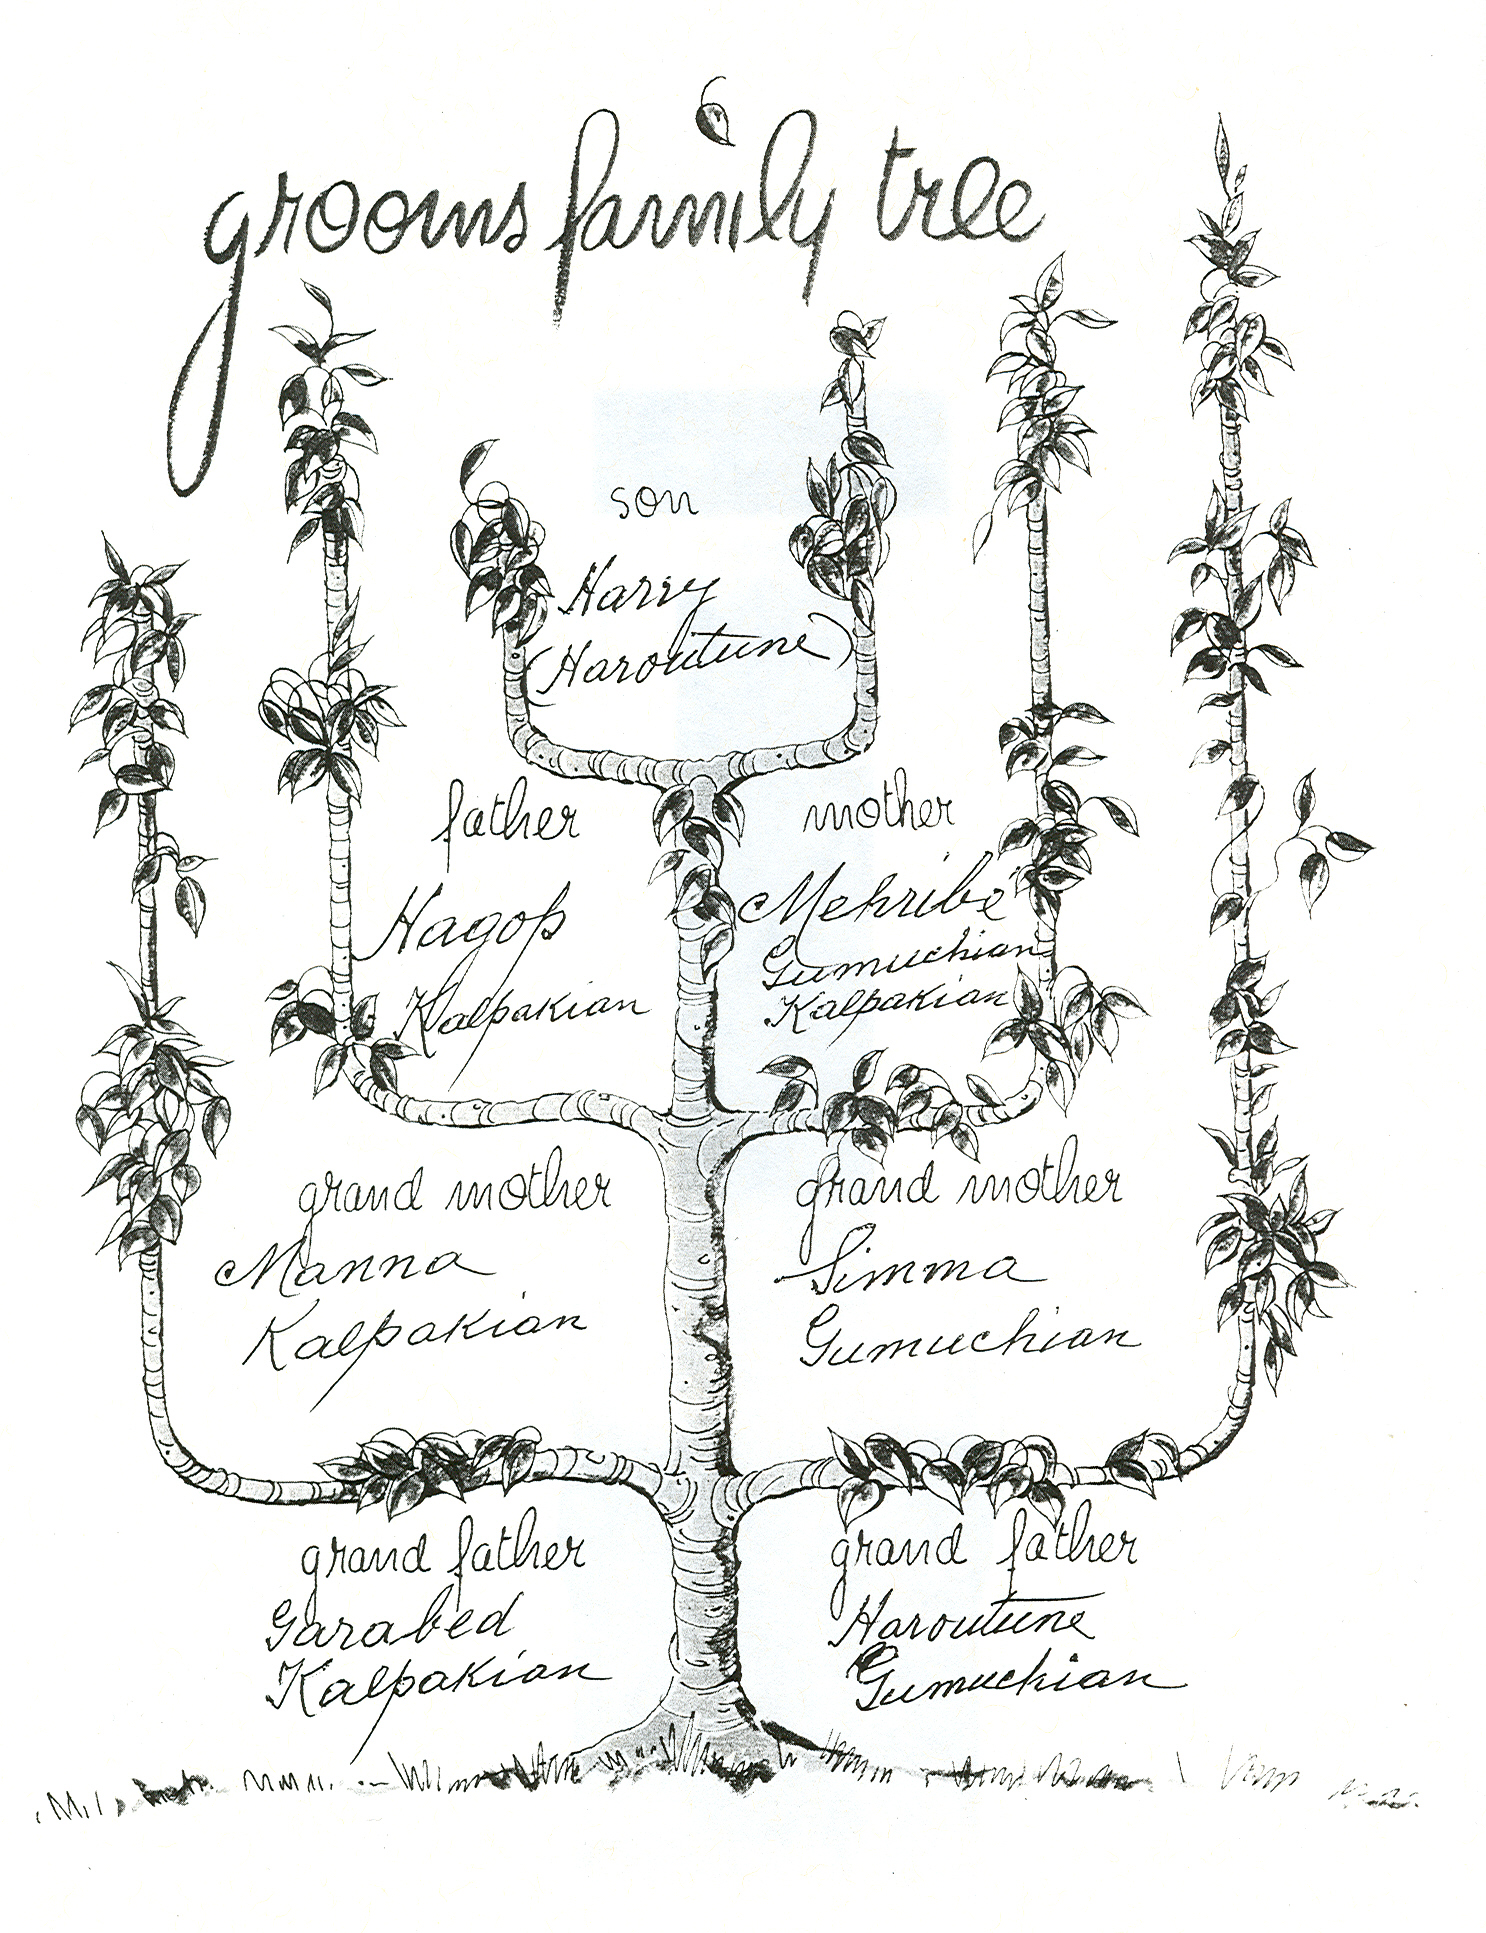 grooms family tree
son
Harry
(Haroutune)
father
Hagop
Kalpakian
mother
Mehribé
Gumuchian
Kalpakian
grand mother
Manna
Kalpakian
grand mother
Simma
Gumuchian
grand father
Garabed
Kalpakian
grand father
Haroutune
Gumuchian